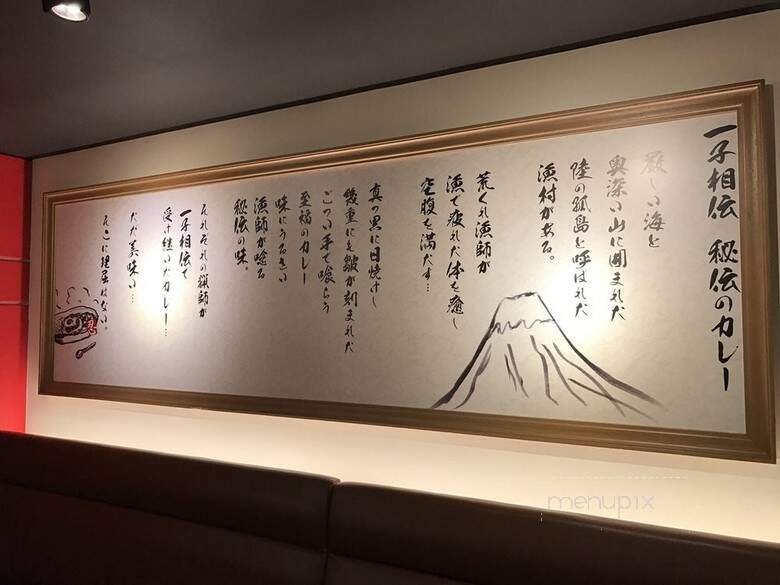 一子相伝 秘伝のカレー
厳しい海と
奥深い山に囲まれた
陸の孤島と呼ばれた
漁村がある。
荒くれ漁師が
漁で疲れた体を癒し
空腹を満たす…
真っ黒に日焼けし
幾重にも皺が刻まれた
ごつい手で喰らう
至福のカレー
味にうるさい
漁師が唸る
秘伝の味。
それぞれの猟師が
一子相伝で
受け継いだカレー…
ただ美味い…
そこに理屈はない。
menupix